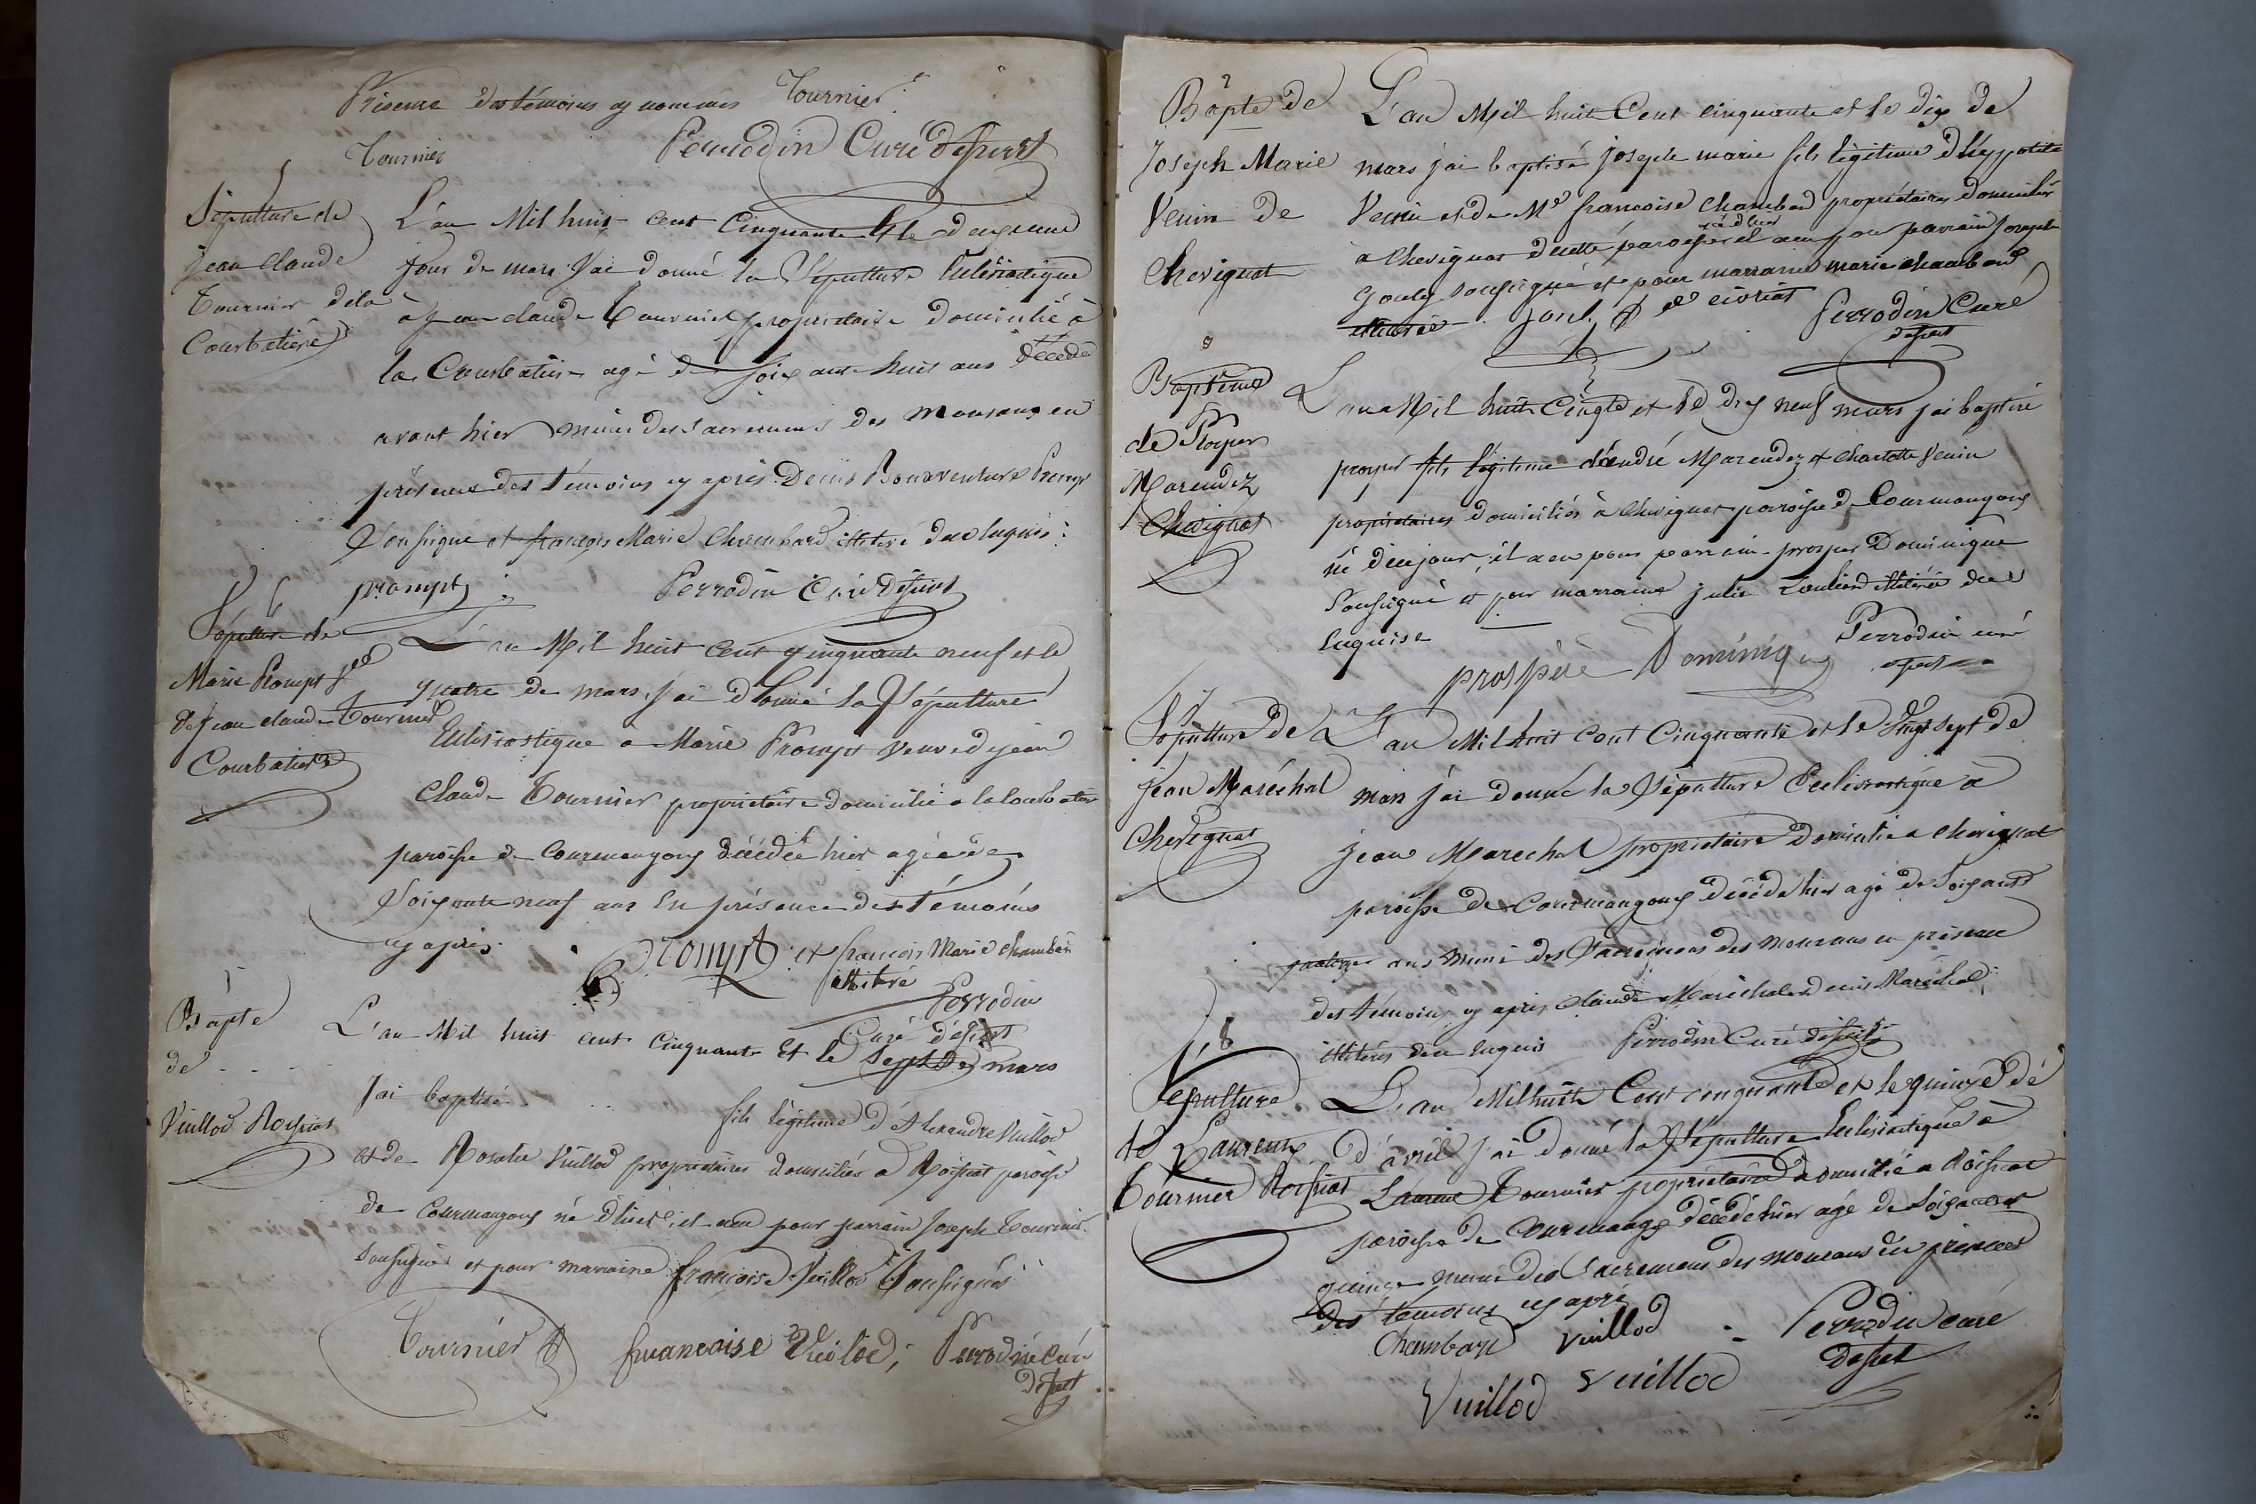 Présence des témoins cy nommés Tournier
Tournier Perrodin Curé
5
Sépulture de
Jean Claude
Tournier de la
Courbatière
L'an Mil huit cent Cinquante et le deuxieme
jour de mars j'ai donné la Sépulture Eclésiastique
à jean claude Tournier propriétaire Domicilié à
la Courbatiere agé de soixante huit ans décédé
avant hier muni des sacremens des mourans en
présence des témoins cy après Denis Bonaventure Prompt
Soussigné et françois Marie Chambard illitéré de ce luquis:
prompt Perrodin Curé
6
Sépulture de
Marie Prompt
de Jean claude Tournier
Courbatiere
L'an Mil huit Cent cinquante neuf et le
quatre de mars, j'ai donné la Sépulture
Eclésiastique à Marie Prompt veuve de jean
Claude Tournier propriétaire domicilié a la Courbatiere
paroisse de Courmangoux décédée hier agée de
Soixante neuf ans En présence des témoins
cy après. Prompt et françois Marie chambard
illitéré Perrodin
Curé
Bapte
de
Vuillod Roissiat
L'an Mil huit cent Cinquante Et le Sept de mars
J'ai baptisé fils légitime d'Alexandre Vuillod
et de Rosalie Vuillod propriétaires domiciliés a Roissiat paroisse
de Courmangoux né d'hier; il a eu pour parrain Joseph Tournier
Soussigné et pour marraine françoise Vuillod Soussignés
Tournier francoise Vuilod; Perrodin Curé
7
Bapte de
Joseph Marie
Venin de
Chevignat
L'an Mil huit Cent cinquante et le dix de
mars j'ai baptisé joseph marie fils légitime d'hyppolite
Venin et de Me françoise Chambard propriétaires domiciliés
à Chevignat de cette paroisse né d'hier il a eu pour parrain Joseph
Gouly soussigné et pour marraine marie chambard
illitérée Perrodin Curé
8
Baptême
de Prosper
Marendez
Chevignat
L'an Mil huit Cinqte et le dix neuf mars j'ai baptisé
prosper fils légitime d'andré Marendez et Charlotte Venin
propriétaires domiciliés à Chevignat paroisse de Courmangoux
né de ce jour; il a eu pour parrain prosper Dominique
Soussigné et pour marraine julie illitérée de ce
luquise
prospère Dominique Perrodin curé
7
Sépulture de
Jean Maréchal
Chevignat
L'an Mil huit cent Cinquante et le Vingt sept de
mars j'ai donné la Sépulture Eclésiastique à
jean Marechal propriétaire Domicilié a Chevignat
paroisse de Courmangoux décédé hier agé de Soixante
quatorze ans muni des Sacremens des mourans en présence
des témoins cy après Claude Maréchal et denis Maréchal,
illitérés de ce luquis Perrodin Curé
8
Sépulture
de Laurent
Tournier Roissiat
L'an Mil huit Cent cinquante et le quinze de
d'avril j'ai donné la Sépulture Eclésiastique à
Laurent Tournier propriétaire domicilié a Roissiat
paroisse de Courmangx décédé hier agé de Soixante
quinze muni des Sacremens des mourans En présence
des témoins cy après
Chambard Vuillod Perrodin curé
Vuillod Vuillod